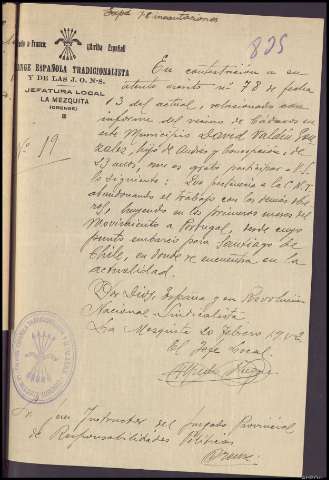 Expd 78 incautaciones
825
Saludo a Franco: ¡Arriba España!
FALANGE ESPAÑOLA TRADICIONALISTA
Y DE LAS J. O. N-S.
JEFATURA LOCAL
LA MEZQUITA
(ORENSE)
Nº 19
En contestación a su
atento escrito nº 78 de fecha
13 del actual, relacionado con
informe del vecino de Cádavos en
este Municipio David Valdés Gon-
zález, hijo de Andrés y Concepción, de
23 años, me es grato participar a V. S.
lo siguiente: Que pertenecía a la C.N.T
abandonando el trabajo con los demás obre-
ros, huyendo en los primeros meses del
Movimiento a Portugal, desde cuyo
punto embarcó para Santiago de
Chile, en donde se encuentra en la
actualidad.
Por Dios, España y su Revolución
Nacional Sindicalista
La Mezquita 20 Febrero 1942
El Jefe Local
Sr. Juez Instructor del Juzgado Provincial
de Responsabilidades Políticas
Orense